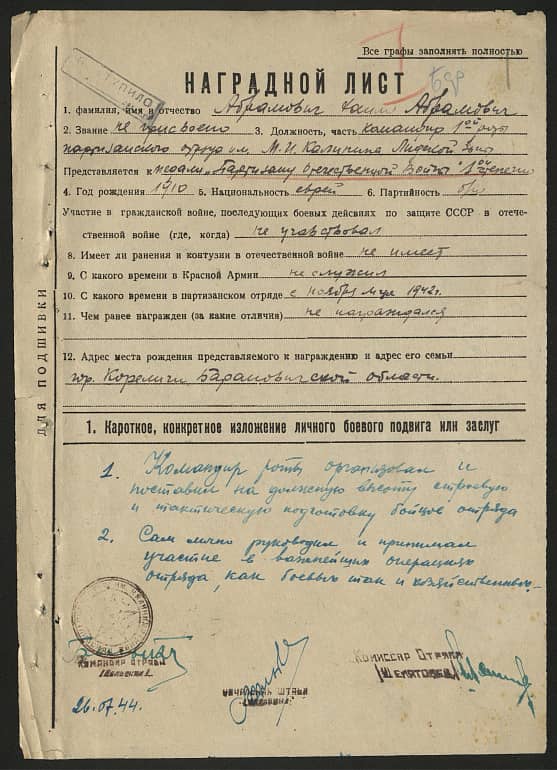 Все графы заполнять полностью
НАГРАДНОЙ ЛИСТ
1. фамилия, имя и отчество Абрамович Хаим Абрамович
2. Звание не присвоено 3. Должность, часть командир 1ой роты
партизанского отряда им. М.И. Калинина Лидской зоны
Представляется к медали „Партизану Отечественной Войны" 1ой степени
4. Год рождения 1910 5. Национальность еврей 6. Партийность б/п
Участие в гражданской войне, последующих боевых действиях по защите СССР в отече-
ственной войне (где, когда) не участвовал
8. Имеет ли ранения и контузии в отечественной войне не имеет
9. С какого времени в Красной Армии не служил
10. С какого времени в партизанском отряде с ноября м-ца 1942г.
11. Чем ранее награжден (за какие отличия) не награждался
12. Адрес места рождения представляемого к награждению и адрес его семьи
гор. Кореличи Барановичской области.
ДЛЯ ПОДШИВКИ
1. Короткое, конкретное изложение личного боевого подвига или заслуг
1. Командир роты организовал и
поставил на должную высоту строевую
и тактическую подготовку бойцов отряда
2. Сам лично руководил и принимал
участие в важнейших операциях
отряда, как боевых так и хозяйственных.
Командир отряда
Начальник штаба
Комиссар отряда
26.07.44.